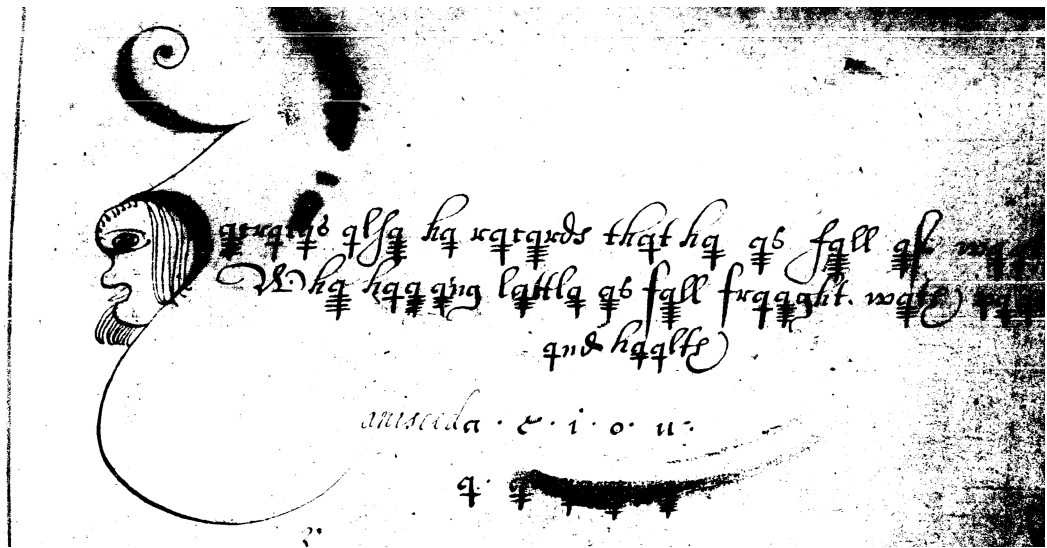 qcrqtqs qlsq hq rqcqrds thqt hq qs fqll qf
Whq hqqqng lqttlq qs fqll frqqght. wqth
qnd hqqlth
a · e · i · o · u ·
q · q q q q